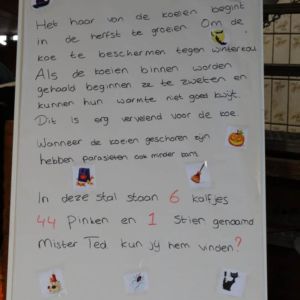 Het haar van de koeien begint
in de herfst te groeien. Om de
koe te beschermen tegen winterkou.
Als de koeien binnen worden
gehaald beginnen ze te zweten en
kunnen hun warmte niet goed kwijt.
Dit is erg vervelend voor de koe
Wanneer de koeien geschoren zijn
hebben parasieten ook minder kans.
In deze stal staan 6 kalfjes
44 Pinken en 1 Stier genaamd
Mister Ted. kun jij hem vinden?